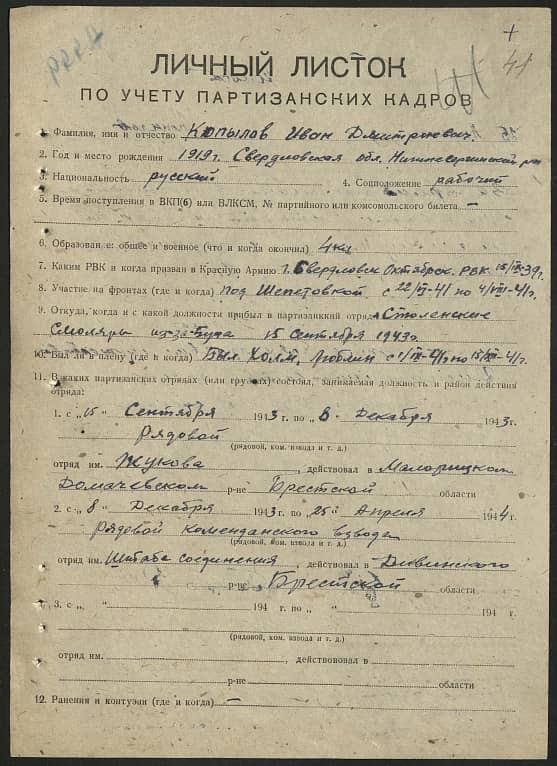 +
41
ЛИЧНЫЙ ЛИСТОК
ПО УЧЕТУ ПАРТИЗАНСКИХ КАДРОВ
1. Фамилия, имя и отчество Кюпылов Иван Дмитриевич.
2. Год и место рождения 1919г. Свердловская обл. Нижнесергинский р-н
3. Национальность русский 4. Соцположение рабочий
5. Время поступления в ВКП(б) или ВЛКСМ, № партийного или комсомольского билета –
6. Образование: общее и военное (что и когда окончил) 4 кл.
7. Каким РВК и когда призван в Красную Армию г. Свердловск Октябрск. РВК 15/IX-39г.
8. Участие на фронтах (где и когда) под Шепетовкой с 22/VI-41 по 4/VIII-41г.
9. Откуда, когда и с какой должности прибыл в партизанский отряд Столенские
Смоляры из-за Буга 15 Сентября 1943г.
10. Был ли в плену (где и когда) Был. Холм, Люблин с по -41г.
11. В каких партизанских отрядах (или группах) состоял, занимаемая должность и район действия
отряда:
1. с „15“ Сентября 1943 г. по „8“ Декабря 1943 г.
рядовой
(рядовой, ком. взвода и т. д.)
отряд им. Жукова, действовал в Малоритском
Домачевском р-не Брестской области
2. с „8“ Декабря 1943 г. по „25“ Апреля 1944 г.
рядовой комендантского взвода
(рядовой, ком. взвода и т. д.)
отряд им. Штаба соединения, действовал в Дивинского
р-не Брестской области
3. с „ “ 194 г. по „ “ 194 г.
(рядовой, ком. взвода и т. д.)
отряд им. , действововал в
р-не области
12. Ранения и контузии (где и когда) –